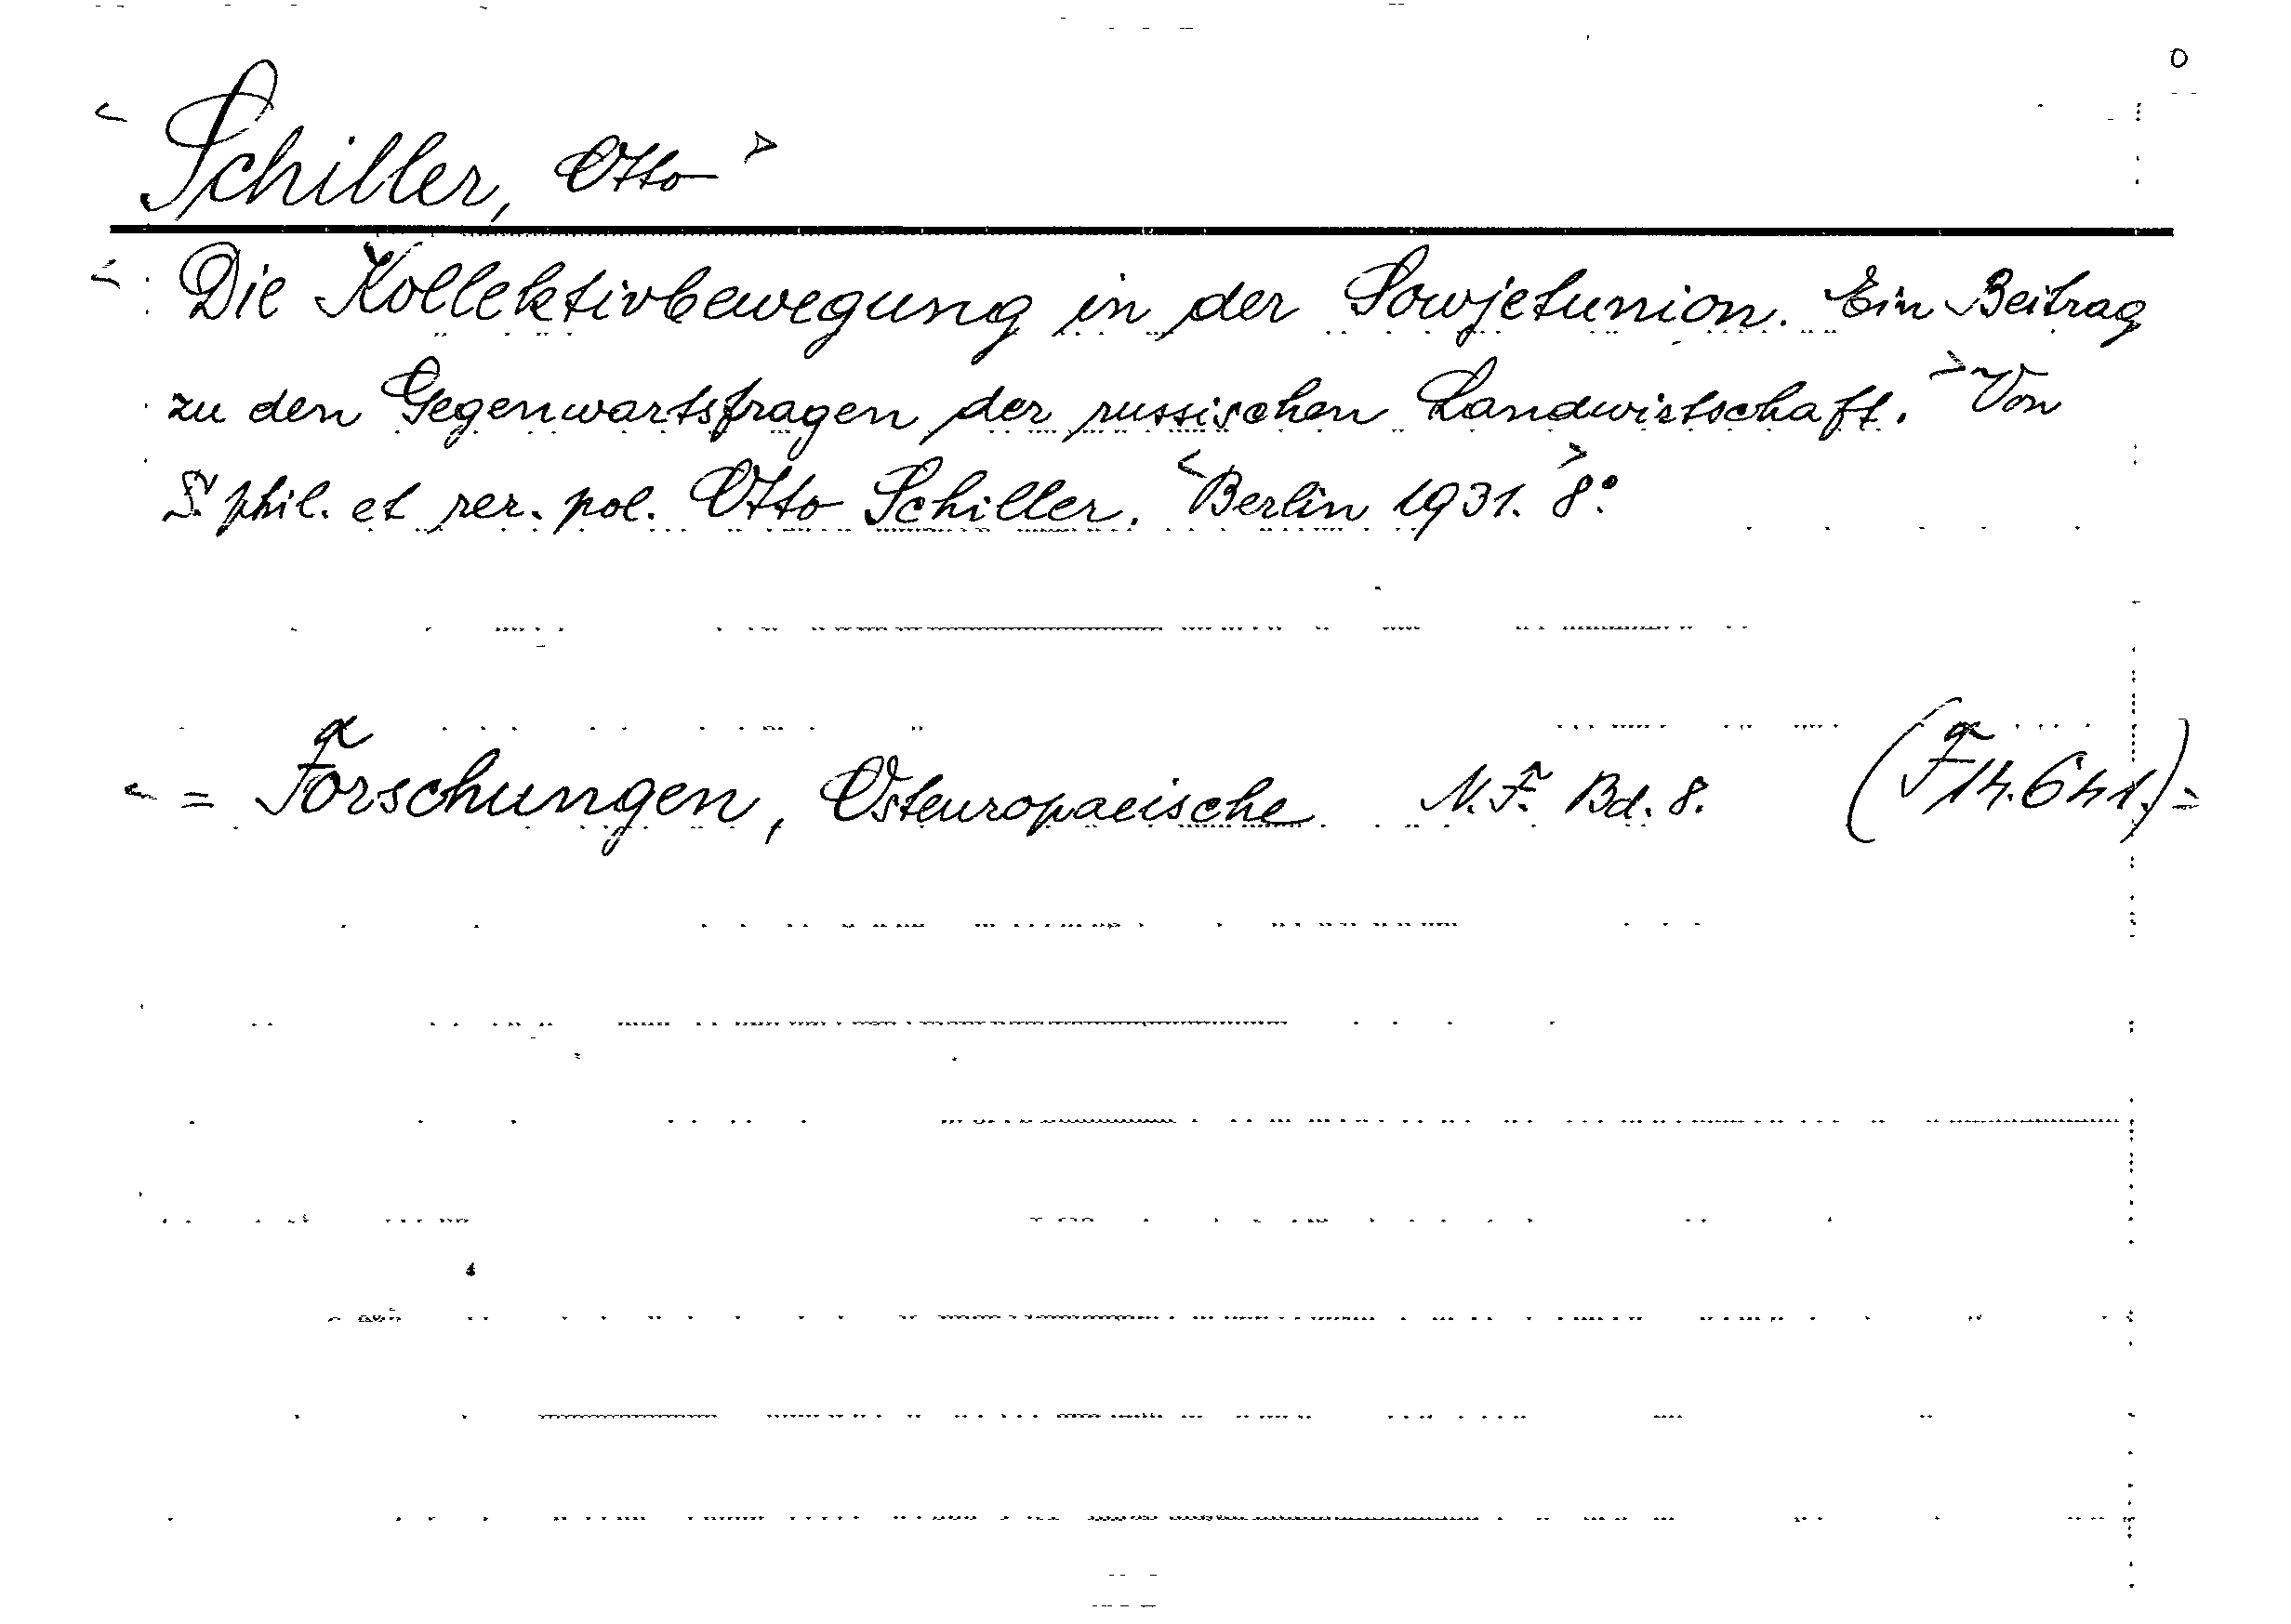 O
< Schiller, Otto >
< Die Kollektivbewegung in der Sowjetunion. Ein Beitrag
zu den Gegenwartsfragen der russischen Landwirtschaft. > Von
Dr. phil. et rer. pol. Otto Schiller. < Berlin 1931. > 8°.
a a
< = Forschungen, Osteuropaeische N. F. Bd. 8. (F 14.641.) =